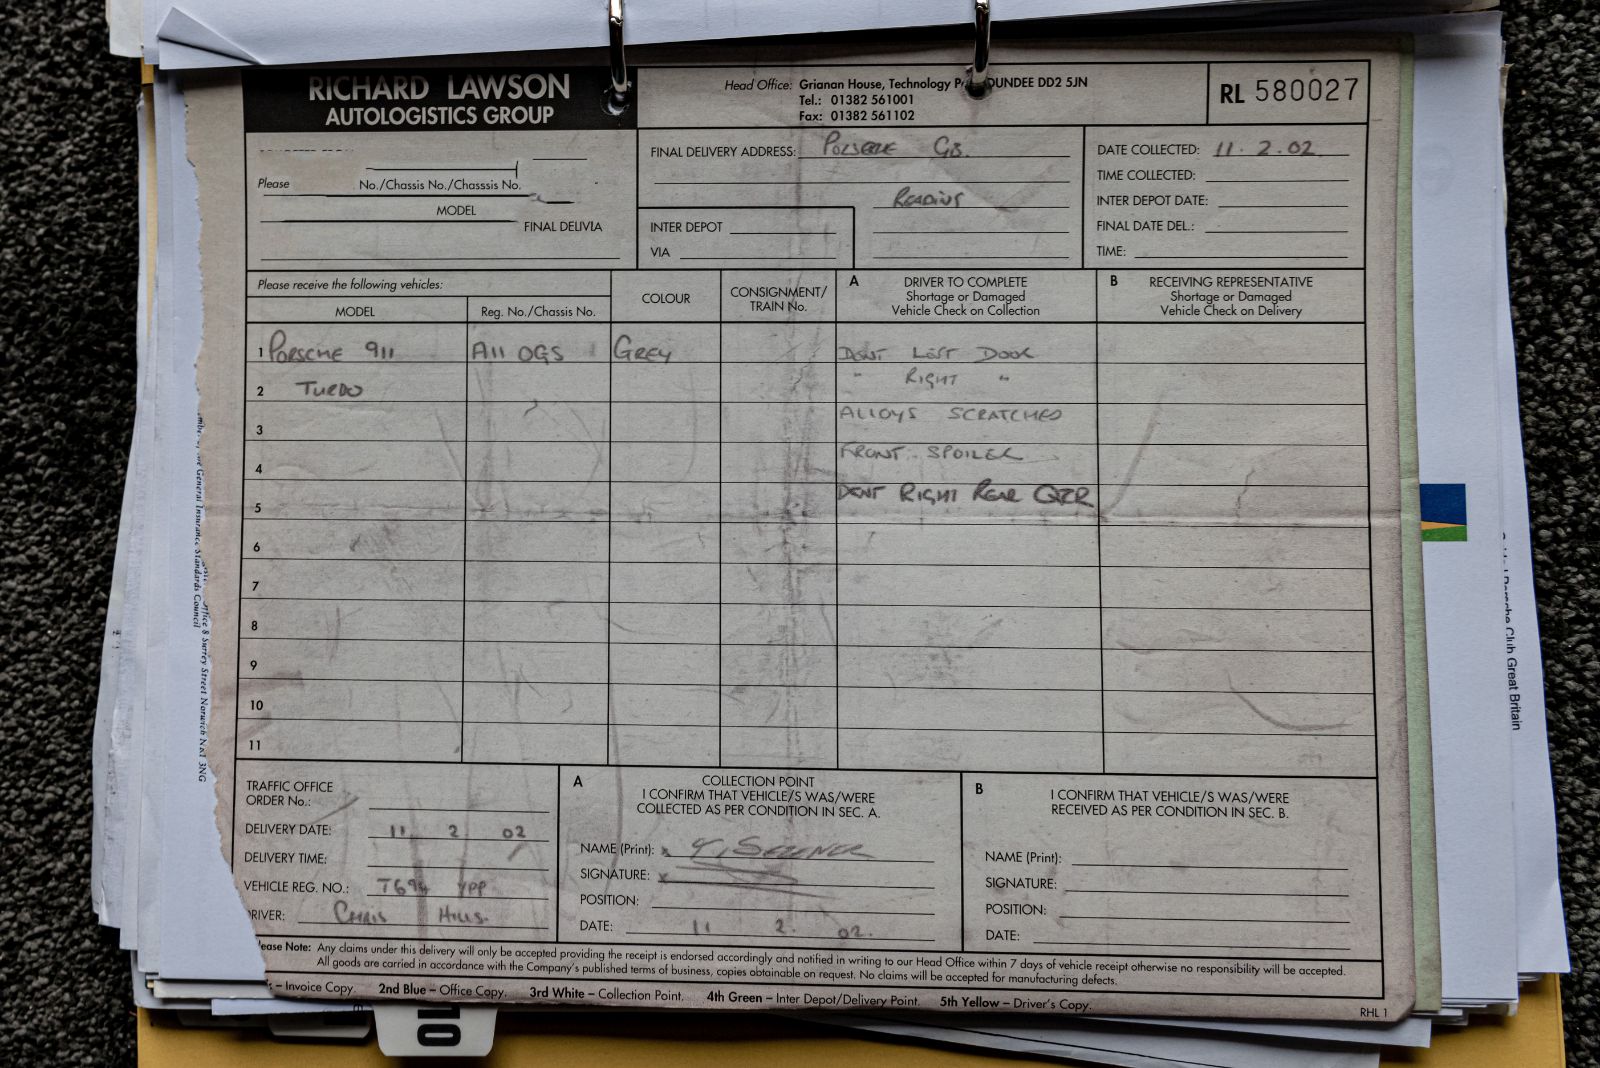 RICHARD LAWSON
AUTOLOGISTICS GROUP
Head Office: Grianan House, Technology DUNDEE DD2 5JN
Tel.: 01382 561001
Fax: 01382 561102
RL 580027
Please No./Chassis No./Chasssis No.
MODEL
FINAL DELIVIA
FINAL DELIVERY ADDRESS: PORSCHE GB.
READING
INTER DEPOT
VIA
DATE COLLECTED: 11.2.02
TIME COLLECTED:
INTER DEPOT DATE:
FINAL DATE DEL.:
TIME:
Please receive the following vehicles:
MODEL
Reg. No./Chassis No.
COLOUR
CONSIGNMENT/
TRAIN No.
A DRIVER TO COMPLETE
Shortage or Damaged
Vehicle Check on Collection
B RECEIVING REPRESENTATIVE
Shortage or Damaged
Vehicle Check on Delivery
1 PORSCHE 911 A11 OGS GREY DENT LEFT DOOR
2 TURBO " RIGHT "
3 ALLOYS SCRATCHED
4 FRONT SPOILER
5 DENT RIGHT REAR QTR
6
7
8
9
10
11
TRAFFIC OFFICE
ORDER No.:
DELIVERY DATE: 11 2 02
DELIVERY TIME:
VEHICLE REG. NO.: YPP
DRIVER: CHRIS HILLS.
A COLLECTION POINT
I CONFIRM THAT VEHICLE/S WAS/WERE
COLLECTED AS PER CONDITION IN SEC. A.
NAME (Print): x
SIGNATURE: x
POSITION:
DATE: 11 2. 02.
B I CONFIRM THAT VEHICLE/S WAS/WERE
RECEIVED AS PER CONDITION IN SEC. B.
NAME (Print):
SIGNATURE:
POSITION:
DATE:
Please Note: Any claims under this delivery will only be accepted providing the receipt is endorsed accordingly and notified in writing to our Head Office within 7 days of vehicle receipt otherwise no responsibility will be accepted.
All goods are carried in accordance with the Company's published terms of business, copies obtainable on request. No claims will be accepted for manufacturing defects.
– Invoice Copy. 2nd Blue – Office Copy. 3rd White – Collection Point. 4th Green – Inter Depot/Delivery Point. 5th Yellow – Driver's Copy.
RHL 1
General Insurance Standards Council
8 Surrey Street Norwich NR1 3NG
Porsche Club Great Britain
10